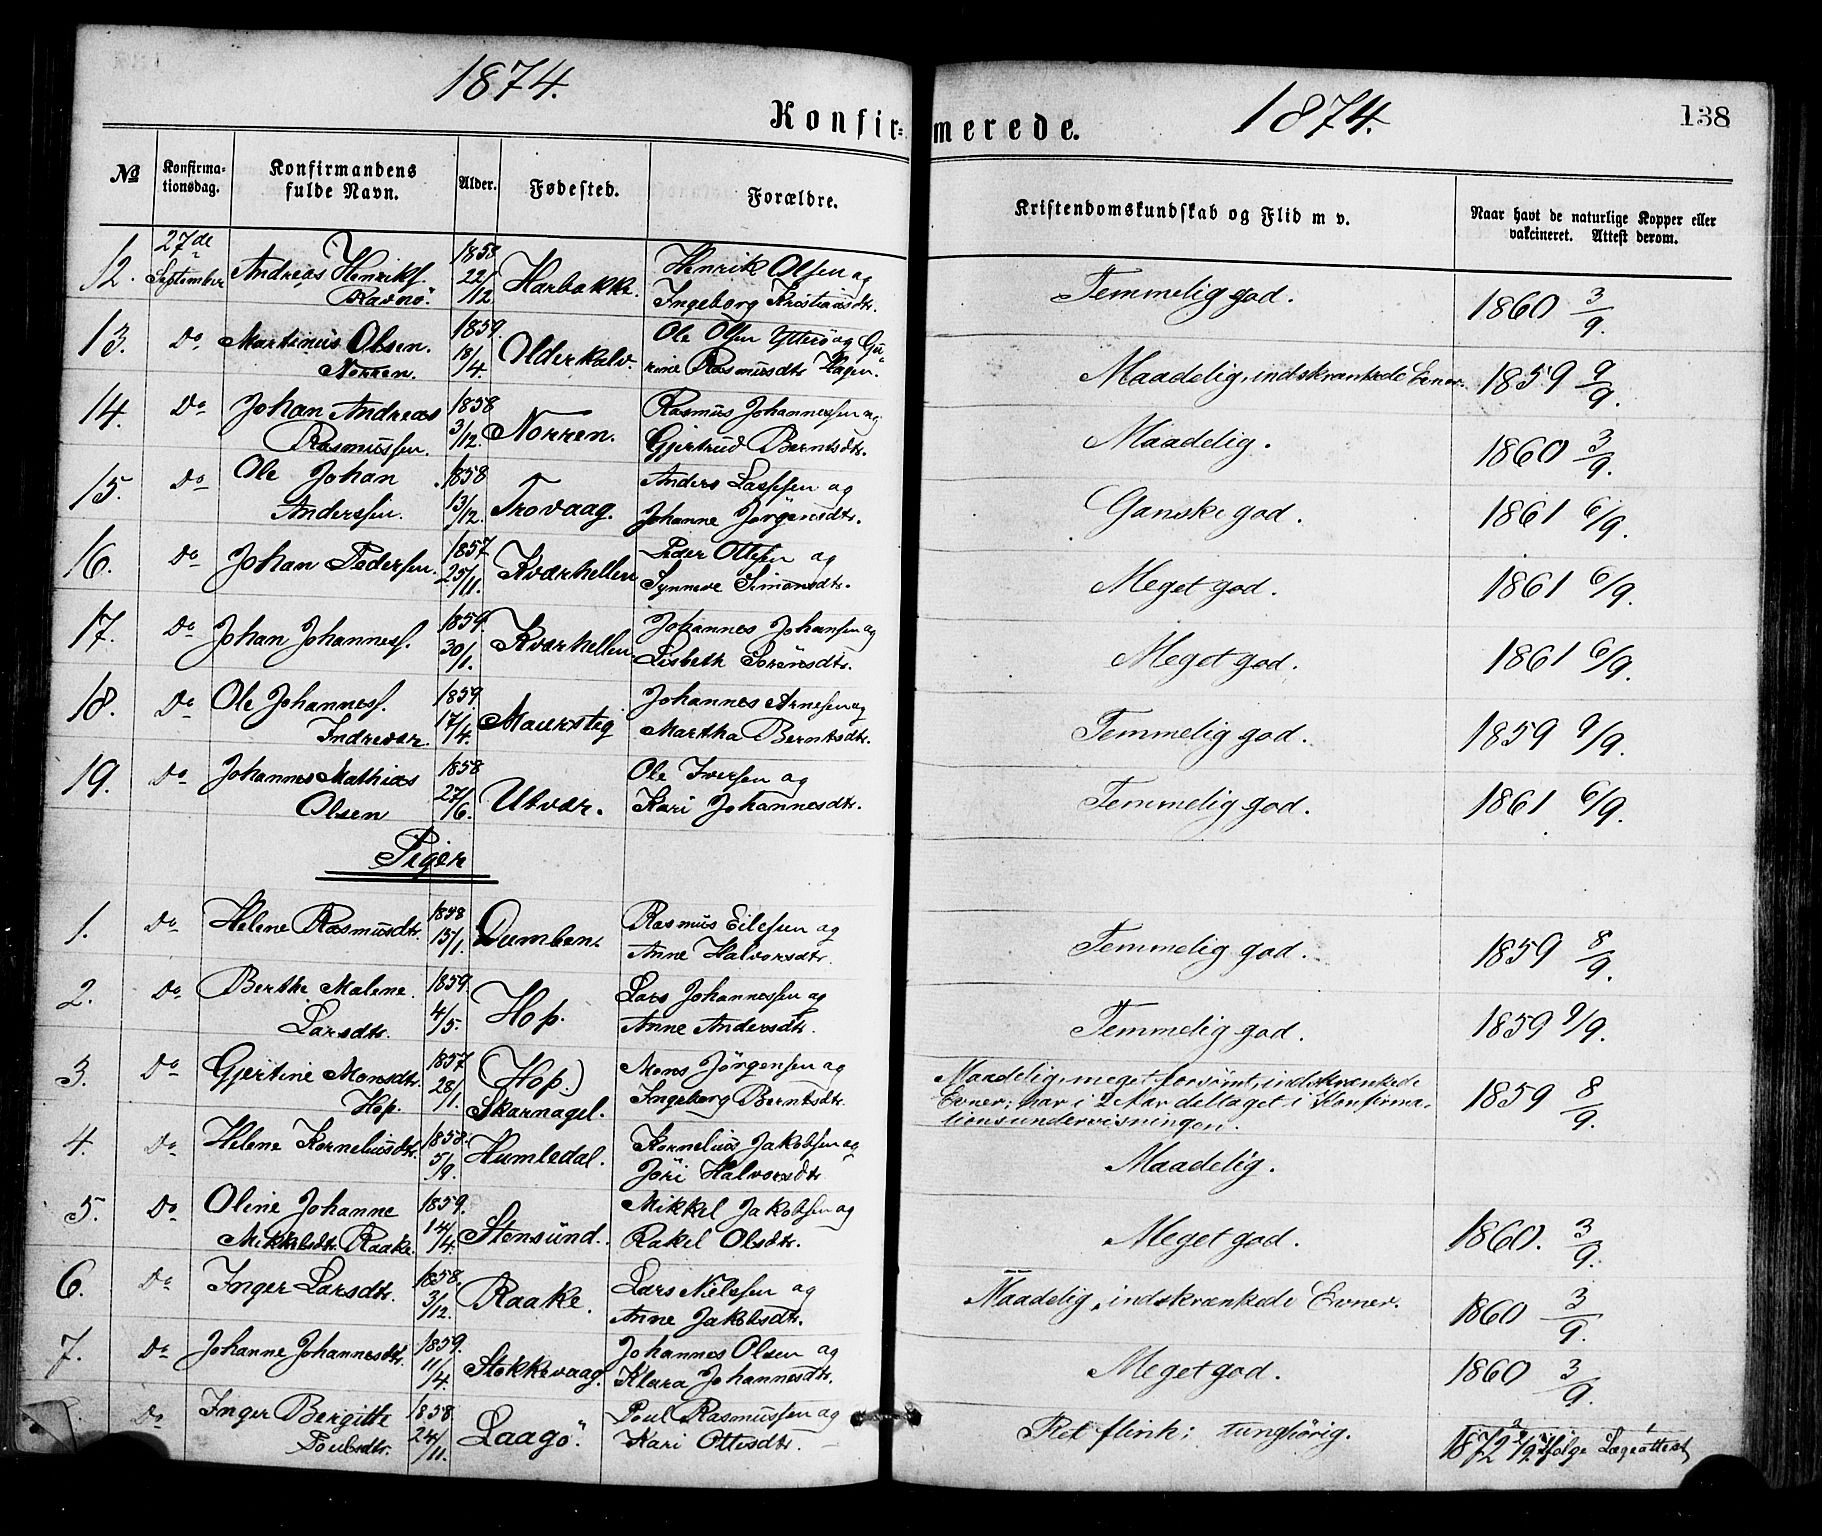 1874.
1874.
138
Konfir=
merede.
No
Konfirma-
tionsdag.
Konfirmandens
fulde Navn.
Alder.
Fødested.
Forældre.
Kristendomskundskab og Flid m v.
Naar havt de naturlige Kopper eller
vakcineret. Attest derom.
12. 27de September Andreas Henriks. 1858 22/12 Harbakke. Henrik Olsen og
Ravnø. Ingeborg Kristiansdtr. Temmelig god. 1860 3/9.
13. Do. Martinus Olsen. 1859. 18/4. Olderkalv. Ole Olsen Ytterø og Gu-
Norren. rine Rasmusdtr Hagen. Maadelig, indskrænkede Evner. 1859 9/9.
14. Do Johan Andreas 1858 3/12. Norren. Rasmus Johannessen og
Rasmussen. Gjertrud Berntsdtr. Maadelig. 1860 3/9.
15. Do Ole Johan 1858 13/12. Trovaag. Anders Lassesen og
Anderssen. Johanne Jørgensdtr. Ganske god. 1861 6/9.
16. Do Johan Pedersen. 1857 25/11. Kværhellen Peder Ottesen og
Synneve Simonsdtr. Meget god. 1861 6/9.
17. Do Johan Johanness. 1859. 30/1. Kværhellen. Johannes Johansen og
Lisbeth Sørensdtr. Meget god. 1861 6/9.
18. Do Ole Johanness. 1859. 17/4. Maurstig Johannes Arnesen og
Indrevær. Martha Berntsdtr. Temmelig god. 1859 9/9.
19. Do Johannes Mathias 1858 27/6. Utvær. Ole Iversen og
Olsen Kari Johannesdtr. Temmelig god. 1861 6/9.
Piger
1. Do Helene Rasmusdtr. 1858 15/1. Dumben. Rasmus Eilesen og
Anne Halvorsdtr. Temmelig god. 1859 8/9.
2. Do Berthe Malene 1859. 4/5. Hop. Lars Johannessen og
Larsdtr. Anne Andersdtr. Temmelig god. 1859 9/9.
3. Do Gjertine Monsdtr. 1857. 28/1. (Hop.) Mons Jørgensen og
Hop. Skarnagel. Ingeborg Berntsdtr. Maadelig, meget forsømt, indskrænkede
Evner; har i 2 Aar deltaget i Konfirma-
tionsundervisningen. 1859 8/9.
4. Do Helene Korneliusdtr. 1858. 5/9. Humledal. Kornelius Jakobsen og
Jøri Halvorsdtr. Maadelig.
5. Do Oline Johanne 1859. 14/4. Stensund. Mikkel Jakobsen og
Mikkelsdtr. Raake. Rakel Olsdtr. Meget god. 1860. 3/9.
6. Do Inger Larsdtr. 1858. 3/12. Raake. Lars Nielsen og
Anne Jakobsdtr. Maadelig, indskrænkede Evner. 1860 3/9.
7. Do Johanne Johannesdtr. 1859. 11/4. Stokkevaag. Johannes Olsen og
Klara Johannesdtr. Meget god. 1860 3/9.
Do Inger Bergitte 1858. 24/11. Laagø. Poul Rasmussen og
Poulsdtr. Kari Ottesdtr. Ret flink; tunghørig. 1872 2/9 ifølge Lægeattest